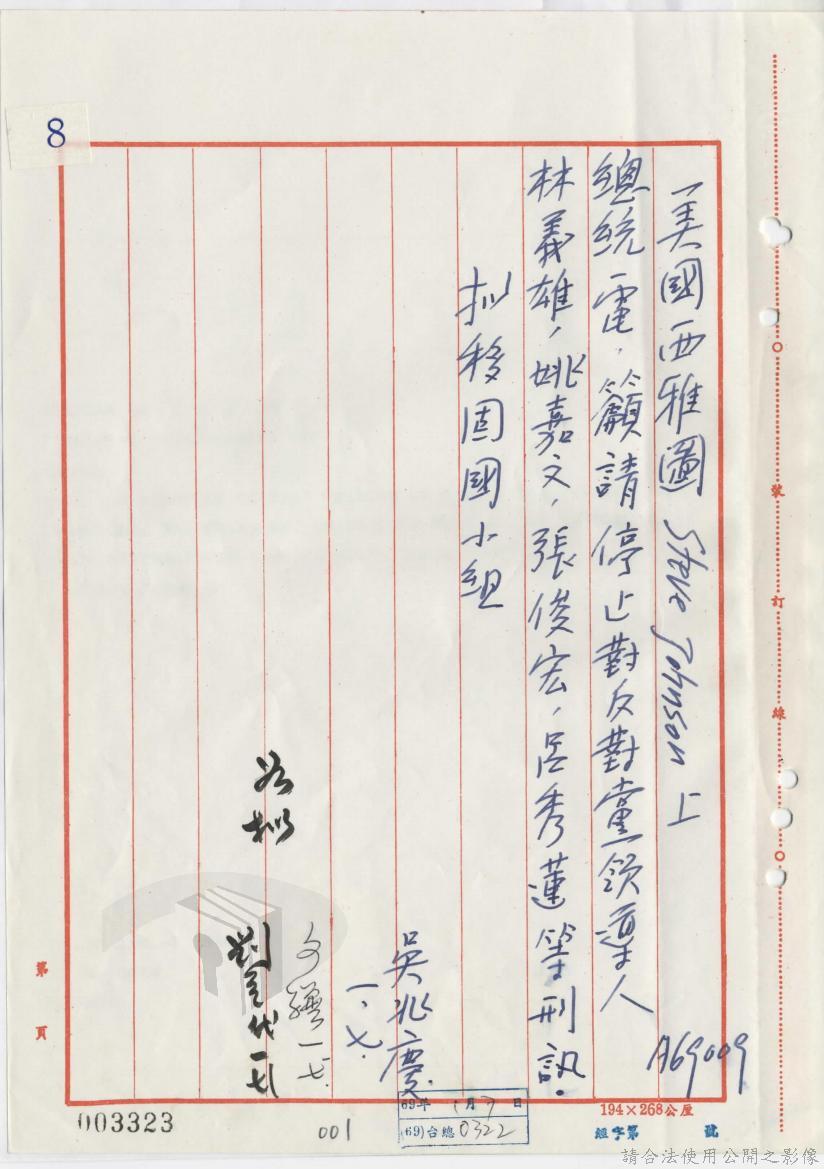 8
一美國西雅圖 Steve Johnson 上
總統電，籲請停止對反對黨領導人
林義雄，姚嘉文，張俊宏，呂秀蓮等刑訊．
拟移固國小組
吳兆慶
一、七．
一七
拟
代
一七
A69009
裝
訂
線
第
頁
003323
001
69年1月7日
(69)台總0322
194×268公厘
經字第 號
請合法使用公開之影像